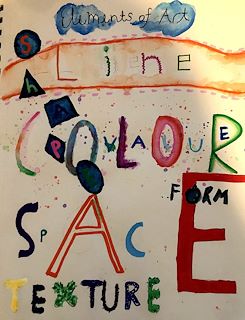 Elements of Art
Line
ShAPe
COLOUR
VALUE
FORM
SpACE
TEXTURE